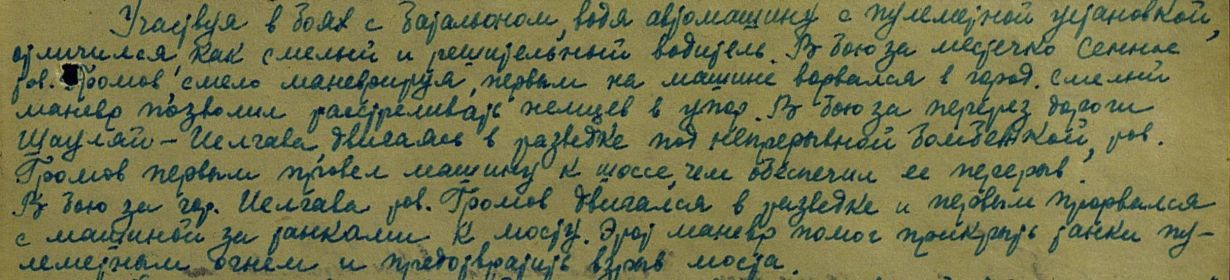 Участвуя в боях с батальоном, водя автомашину с пулеметной установкой,
отличился как смелый и решительный водитель. В бою за местечко Сенное
тов. Громов, смело маневрируя, первым на машине ворвался в город. Смелый
маневр позволил расстреливать немцев в упор. В бою за перерез дороги
Шауляй - Иелгава двигаясь в разведке под непрерывной бомбежкой, тов.
Громов первым провел машину к шоссе, чем обеспечил ее перерыв.
В бою за гор. Иелгава тов. Громов двигался в разведке и первым прорвался
с машиной за танками к мосту. Этот маневр помог прикрыть танки пу-
леметным огнем и предотвратить взрыв моста.